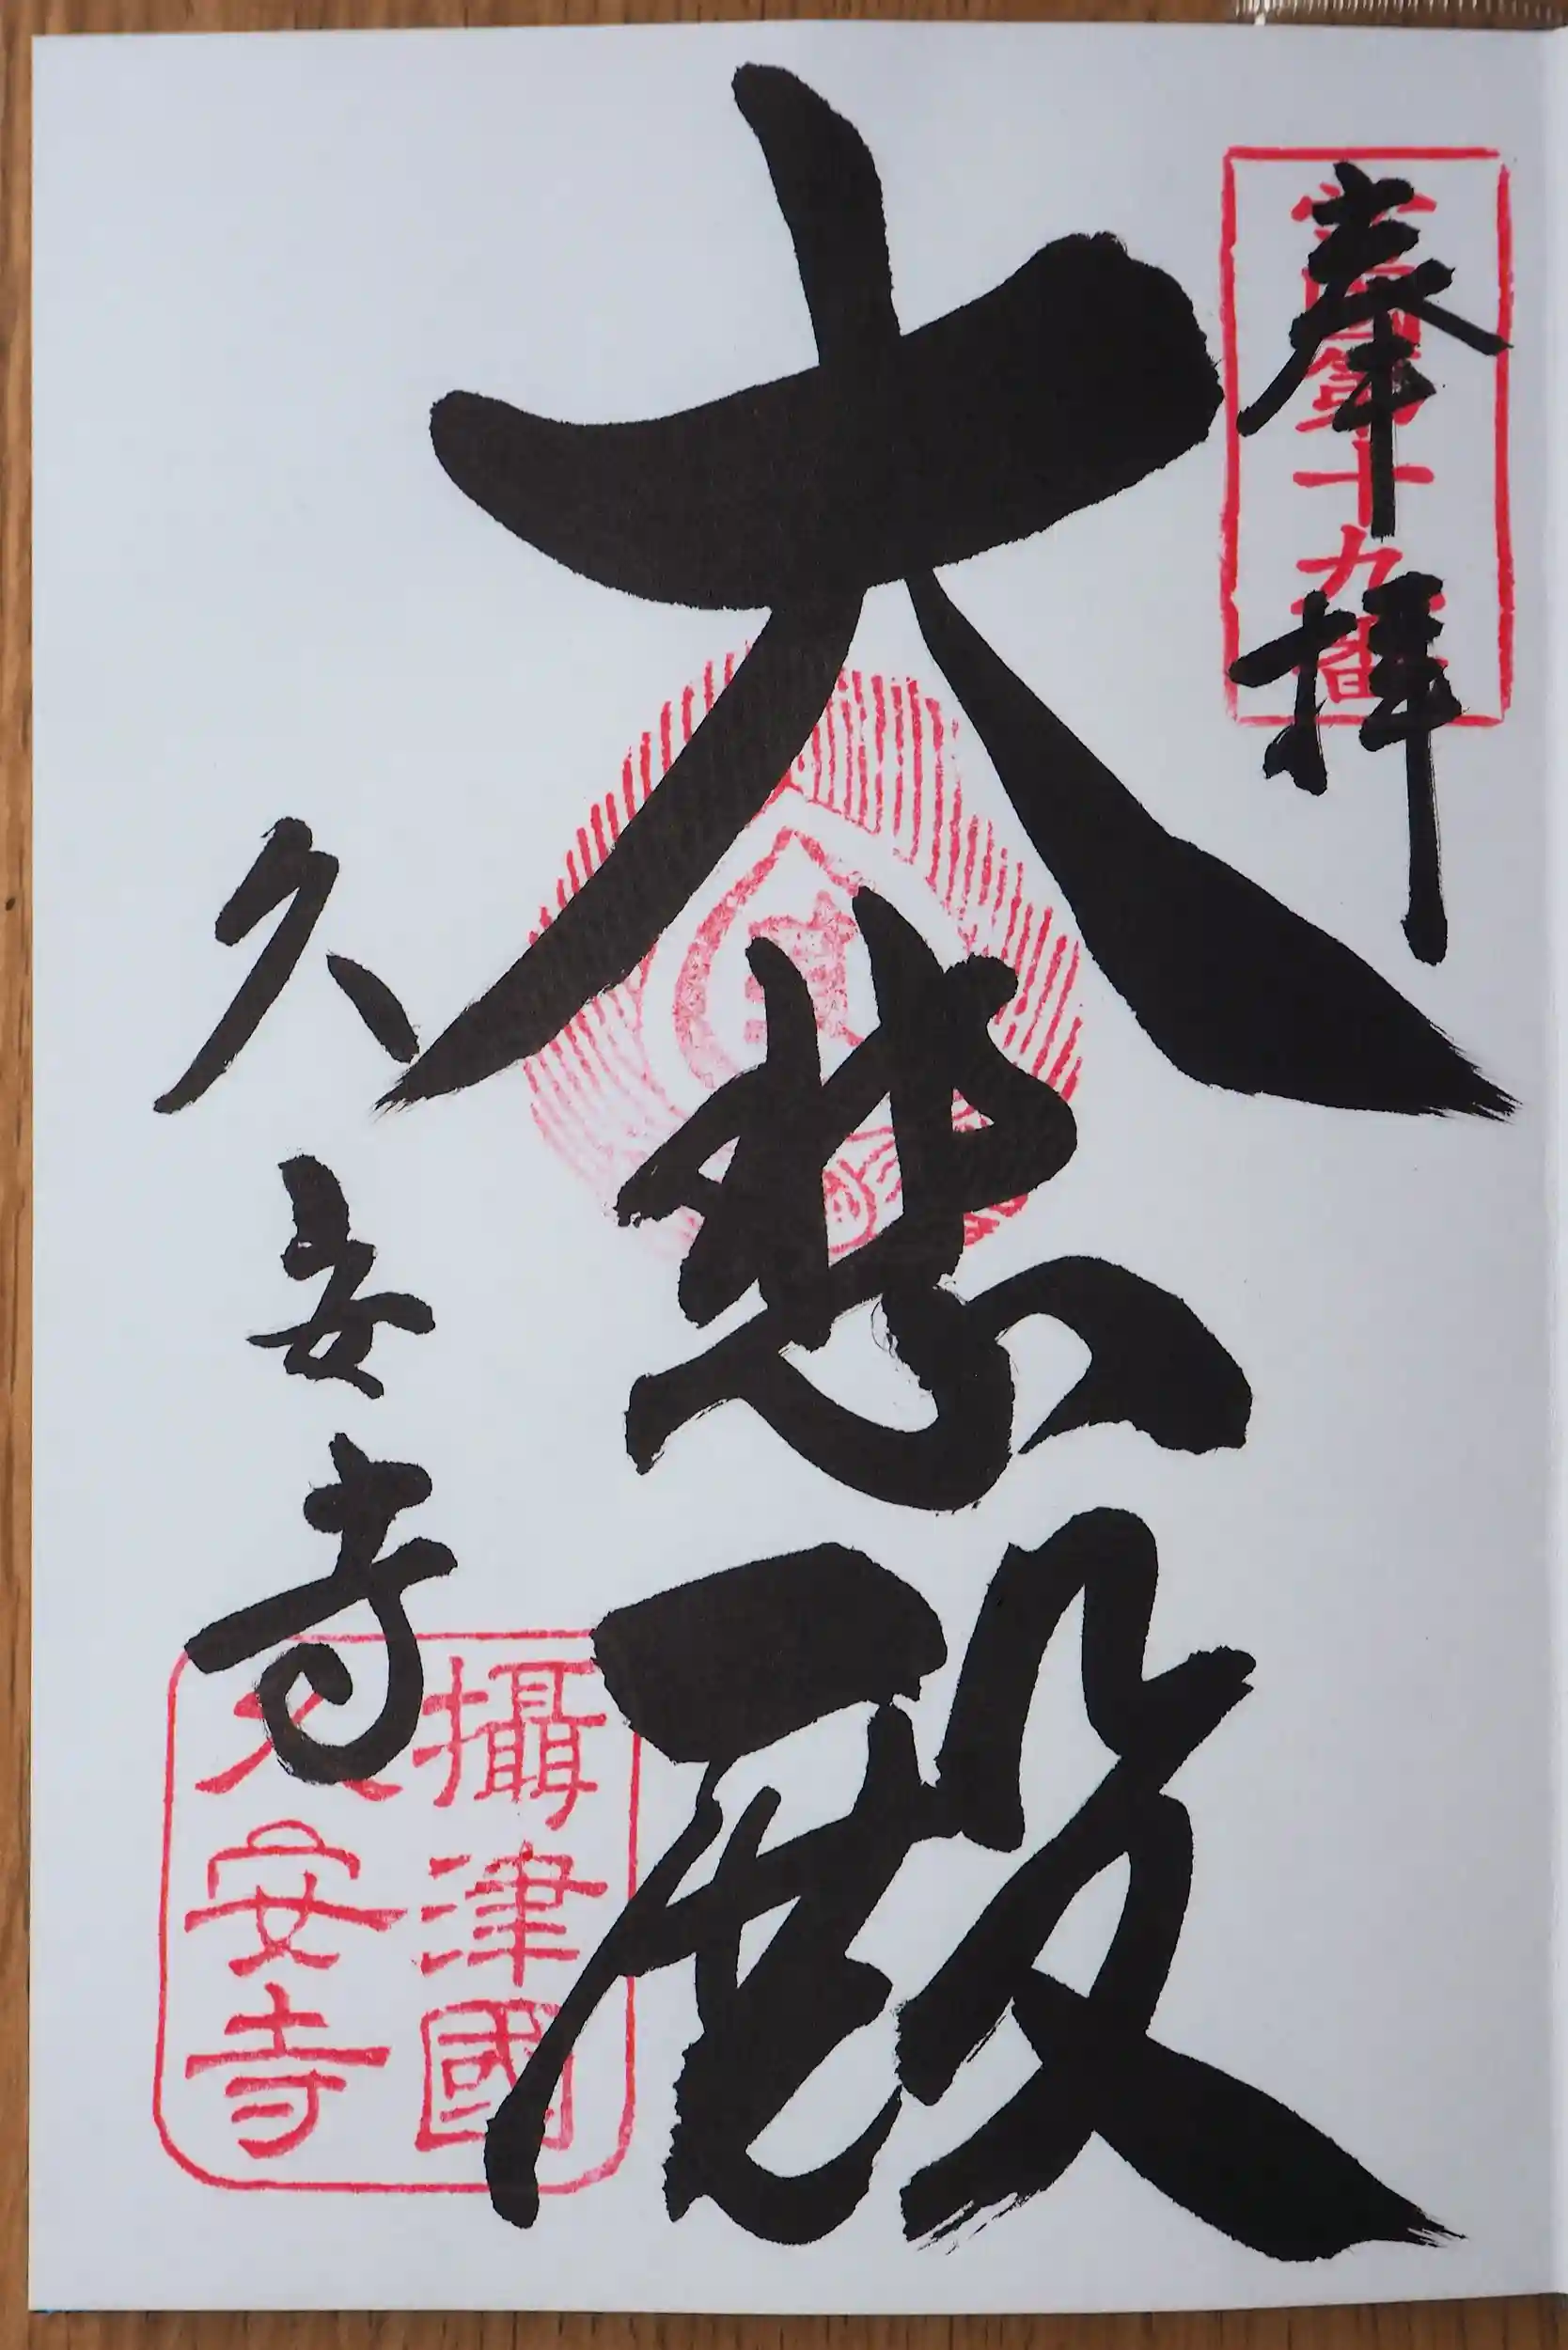 奉拝
西国第十九番
大悲殿
久安寺
攝津國
久安寺